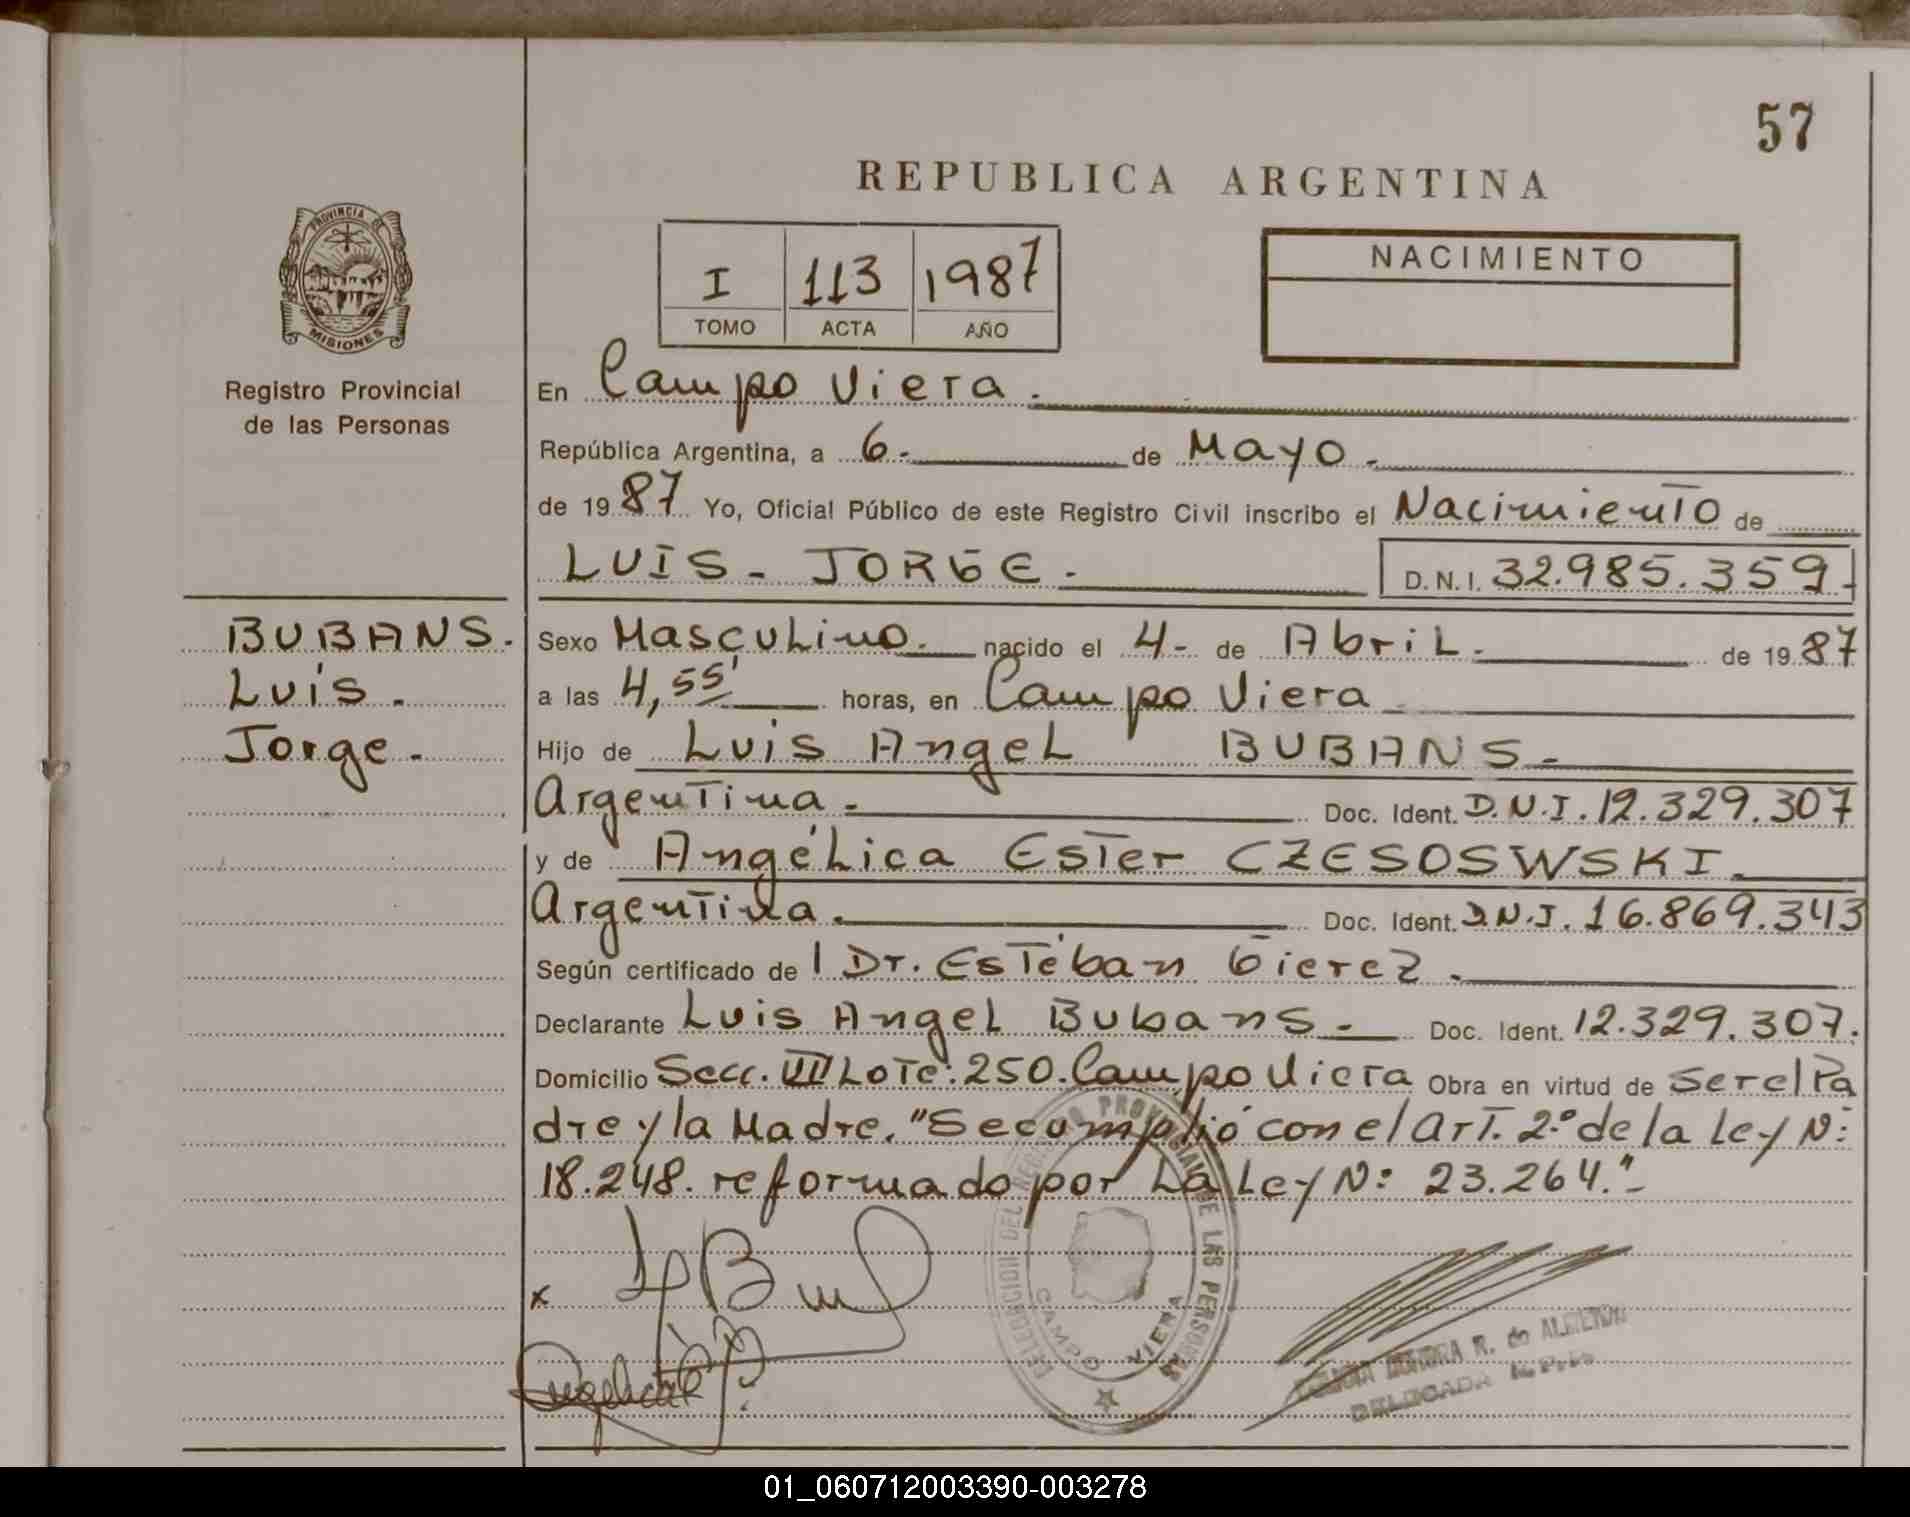 57
REPUBLICA ARGENTINA
PROVINCIA DE
MISIONES
Registro Provincial
de las Personas
I 113 1987
TOMO ACTA AÑO
NACIMIENTO
En Campo Viera.
República Argentina, a 6.- de Mayo.
de 1987 Yo, Oficial Público de este Registro Civil inscribo el Nacimiento de
LUIS - JORGE.
D.N.I. 32.985.359.
BUBANS.
Luis.
Jorge.
Sexo Masculino. nacido el 4- de Abril. de 1987
a las 4,55' horas, en Campo Viera
Hijo de Luis Angel BUBANS.
Argentina. Doc. Ident. D.N.I. 12.329.307
y de Angélica Ester CZESOSWSKI.
Argentina. Doc. Ident. D.N.I. 16.869.343
Según certificado de 1 Dr. Estéban Gierez.
Declarante Luis Angel Bubans. Doc. Ident. 12.329.307.
Domicilio Secc. VII Lote: 250. Campo Viera Obra en virtud de ser el Pa
dre y la Madre. "Se cumplió con el Art. 2º de la Ley N:
18.248. reformado por La Ley N: 23.264."
DELEGACION DEL REGISTRO PROVINCIAL DE LAS PERSONAS
CAMPO VIERA
x
R. de
DELEGADA R.P.P.
01_060712003390-003278